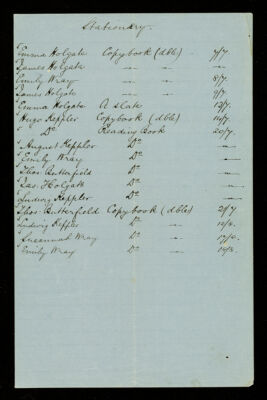 Stationery.
Emma Holgate Copybook (dble) - 7/7.
James Holgate — — —
Emily Wray — — 8/7.
James Holgate — — 9/7.
Emma Holgate A Slate 12/7.
Hugo Keppler Copybook (dble) 14/7.
" Do Reading Book 20/7.
" August Keppler Do —
" Emily Wray Do —
" Thos Butterfield Do —
" Jas. Holgate Do —
" Ludwig Keppler Do —
" Thos Butterfield Copybook (dble) 21/7
" Ludwig Keppler Do —
" Susannah Wray Do —
" Emily Wray Do —